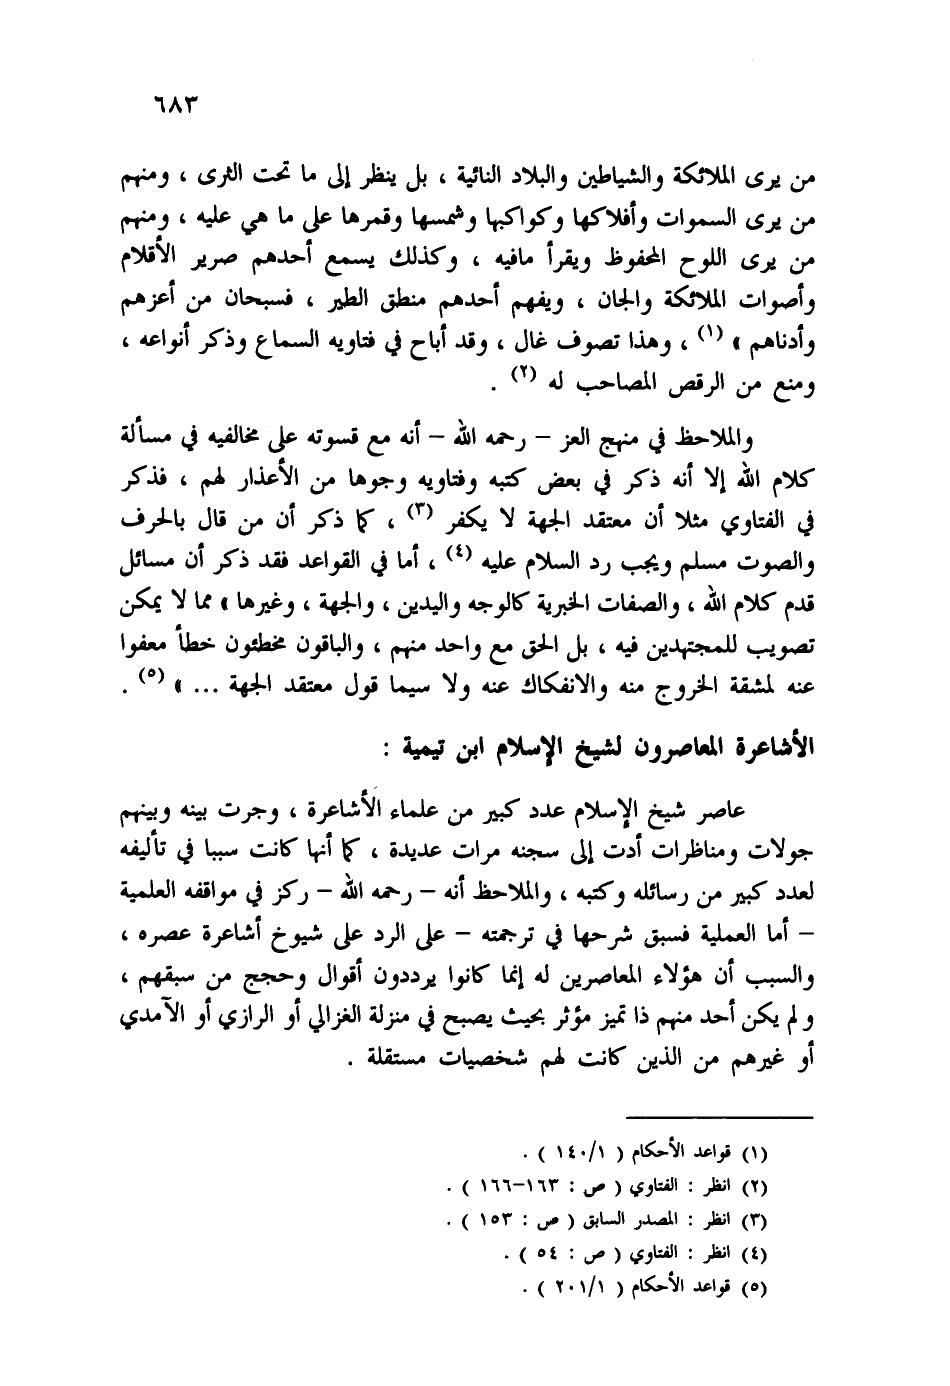 ٦٨٣
من يرى الملائكة والشياطين والبلاد النائية ، بل ينظر إلى ما تحت الثرى ، ومنهم
من يرى السموات وأفلاكها وكواكبها وشمسها وقمرها على ما هي عليه ، ومنهم
من يرى اللوح المحفوظ ويقرأ مافيه ، وكذلك يسمع أحدهم صرير الأقلام
وأصوات الملائكة والجان ، ويفهم أحدهم منطق الطير ، فسبحان من أعزهم
وأدناهم » (١) ، وهذا تصوف غال ، وقد أباح في فتاويه السماع وذكر أنواعه ،
ومنع من الرقص المصاحب له (٢) .
والملاحظ في منهج العز – رحمه الله – أنه مع قسوته على مخالفيه في مسألة
كلام الله إلا أنه ذكر في بعض كتبه وفتاويه وجوها من الأعذار لهم ، فذكر
في الفتاوي مثلا أن معتقد الجهة لا يكفر (٣) ، كما ذكر أن من قال بالحرف
والصوت مسلم ويجب رد السلام عليه (٤) ، أما في القواعد فقد ذكر أن مسائل
قدم كلام الله ، والصفات الخبرية كالوجه واليدين ، والجهة ، وغيرها » مما لا يمكن
تصويب للمجتهدين فيه ، بل الحق مع واحد منهم ، والباقون مخطئون خطأ معفوا
عنه لمشقة الخروج منه والانفكاك عنه ولا سيما قول معتقد الجهة ... » (٥) .
الأشاعرة المعاصرون لشيخ الإسلام ابن تيمية :
عاصر شيخ الإسلام عدد كبير من علماء الأشاعرة ، وجرت بينه وبينهم
جولات ومناظرات أدت إلى سجنه مرات عديدة ، كما أنها كانت سببا في تأليفه
لعدد كبير من رسائله وكتبه ، والملاحظ أنه – رحمه الله – ركز في مواقفه العلمية
– أما العملية فسبق شرحها في ترجمته – على الرد على شيوخ أشاعرة عصره ،
والسبب أن هؤلاء المعاصرين له إنما كانوا يرددون أقوال وحجج من سبقهم ،
ولم يكن أحد منهم ذا تميز مؤثر بحيث يصبح في منزلة الغزالي أو الرازي أو الآمدي
أو غيرهم من الذين كانت لهم شخصيات مستقلة .
(١) قواعد الأحكام ( ١٤٠/١ ) .
(٢) انظر : الفتاوي ( ص : ١٦٣–١٦٦ ) .
(٣) انظر : المصدر السابق ( ص : ١٥٣ ) .
(٤) انظر : الفتاوي ( ص : ٥٤ ) .
(٥) قواعد الأحكام ( ٢٠١/١ ) .